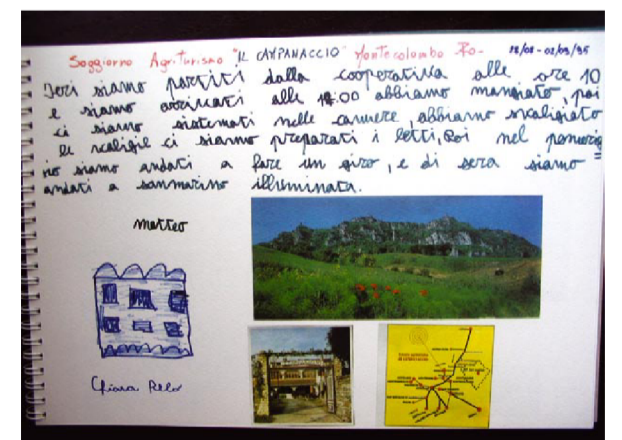 Soggiorno Agriturismo "IL CAMPANACCIO" Montecolombo Ro- 28/08 - 02/09/95
Ieri siamo partiti dalla cooperativa alle ore 10
e siamo arrivati alle 14.00 abbiamo mangiato, poi
ci siamo sistemati nelle camere, abbiamo svaligiato
le valigie ci siamo preparati i letti, poi nel pomerig=
no siamo andati a fare un giro, e di sera siamo
andati a sanmarino illuminata.
matteo
Chiara